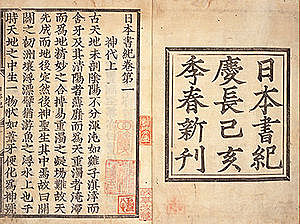 日本書紀
慶長己亥
季春新刊
日本書紀卷第一
神代上
古天地未剖陰陽不分渾沌如雞子溟涬而
含牙及其清陽者薄靡而爲天重濁者淹滯
而爲地精妙之合搏易重濁之凝場難故天
先成而地後定然後神聖生其中焉故曰開
闢之初洲壤浮漂譬猶游魚之浮水上也于
時天地之中生一物狀如葦牙便化爲神